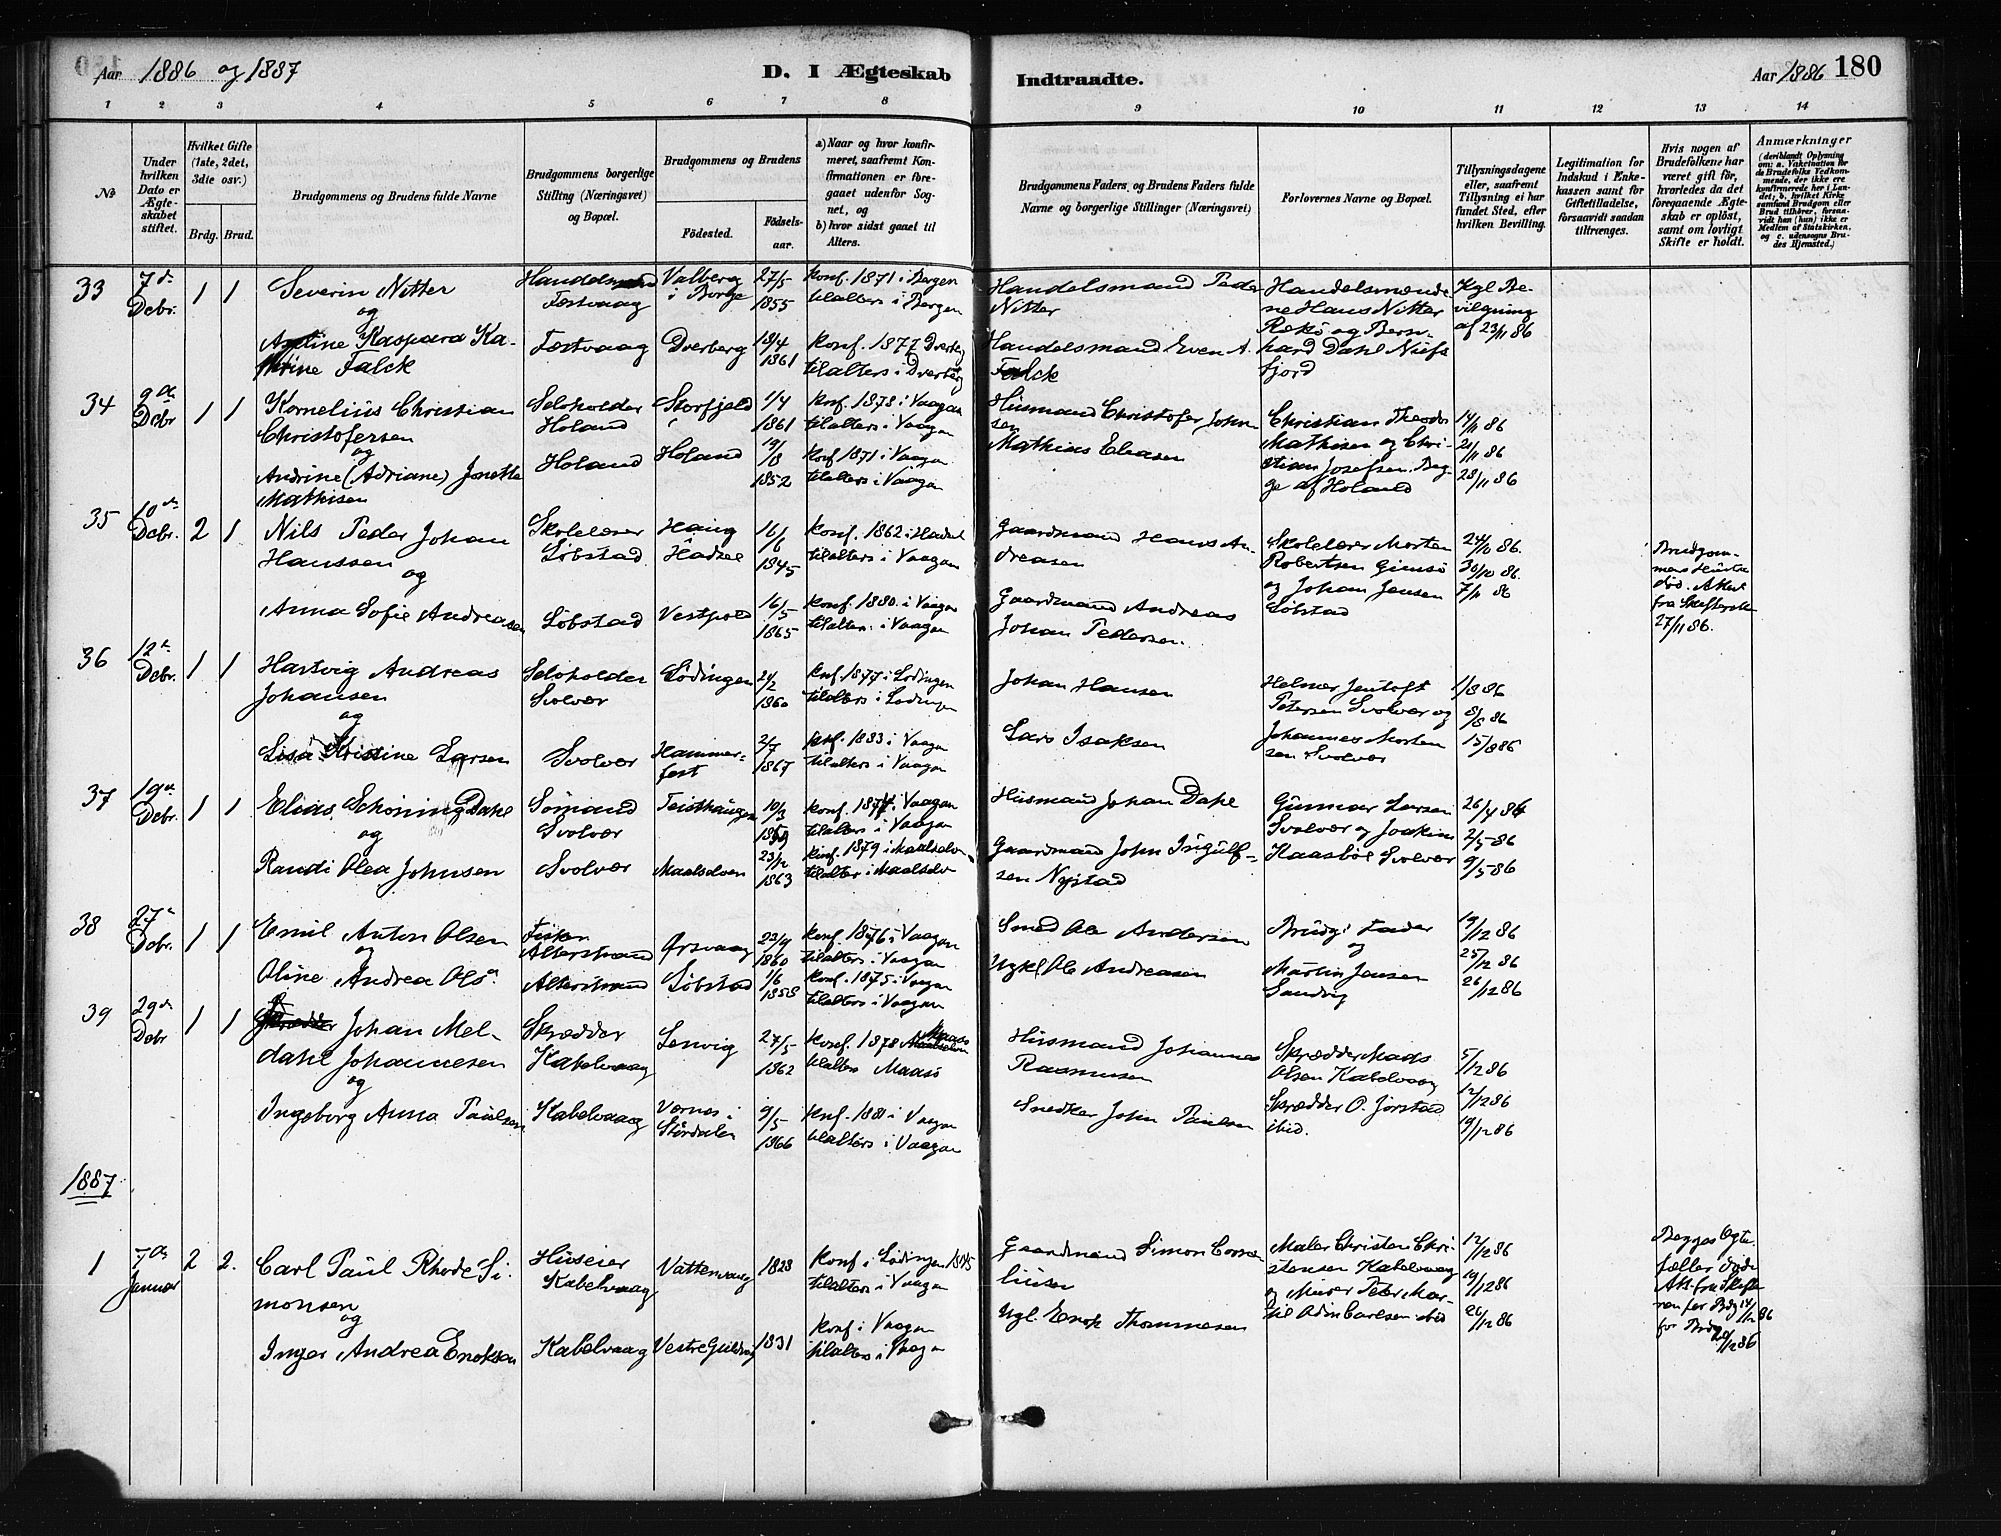 Aar 1886 og 1887
D. I Ægteskab
Indtraadte.
Aar 1886 180
1 2 3 4 5 6 7 8 9 10 11 12 13 14
No
Under hvilken Dato er Ægteskabet stiftet.
Hvilket Gifte (1ste, 2det, 3die osv.)
Brdg. Brud.
Brudgommens og Brudens fulde Navne
Brudgommens borgerlige Stilling (Næringsvei) og Bopæl.
Brudgommens og Brudens
Födested.
Födselsaar.
a) Naar og hvor konfirmeret, saafremt Konfirmationen er foregaaet udenför Sognet, og
b) hvor sidst gaaet til Alters.
Brudgommens Faders, og Brudens Faders fulde Navne og borgerlige Stillinger (Næringsvei)
Forlovernes Navne og Bopæl.
Tillysningsdagene eller, saafremt Tillysning ei har fundet Sted, efter hvilken Bevilling.
Legitimation for Indskud i Enkekassen samt for Giftetilladelse, forsaavidt saadan tiltrænges.
Hvis nogen af Brudefolkene har været gift för, hvorledes da det foregaaende Ægteskab er oplöst, samt om lovligt Skifte er holdt.
Anmærkninger
(deriblandt Oplysning om: a. Vakcination for de Brudefolks Vedkommende, der ikke ere konfirmerede her i Landet; b. hvilket Kirkesamfund Brudgom eller Brud tilhörer, forsaavidt han (hun) ikke er Medlem af Statskirken, og c. udensogns Brudes Hjemsted.)
33 7de Debr. 1 1
Severin Nitter
og
Kaspara Katrine Falck
Festvaag
Valberg i Borge 27/5 1855
Konf. 1871 i Bergen
tilalters i Bergen
Handelsmand Peder Nitter
Handelsmændene Hans Nitter Rækø og Bernhard Dahl
Kgl Bevilgning af 23/11 86
Festvaag Dverberg 18/4 1861
Konf. 1877 Dverberg
tilalters i Dverberg
Handelsmand Even A. Falck
34 9de Debr 1 1
Kornelius Christian Christofersen
og
Andrine (Adriane) Jonette Mathisen
Selvholder Holand
Storfjeld 1/4 1861
Konf. 1878 i Vaagan
tilalters i Vaagan
Husmand Christofer Johnsen
Christian Theodor Mathisen og Christian Josefsen. Begge af Holand
14/11 86
21/11 86
28/11 86
Holand Holand 19/8 1852
Konf 1871 i Vaagan
tilalters i Vaagan
Mathias Eliasen
35 10de Debr. 2 1
Nils Peder Johan Hanssen
og
Anna Sofie Andreasen
Skolelærer Løbstad
Haug Hadsel 16/6 1845
Konf. 1862 i Hadsel
tilalters i Vaagan
Gaardmand Hans Andreasen
Skolelærer Morten Robertsen Gimsø og Johan Jensen Løbstad
24/10 86.
30/10 86.
7/11 86
Brudgommens Hustru død. Attest fra Skifteretten 27/11 86.
Løbstad Vestpold 16/5 1865
Konf. 1880. i Vaagan
tilalters i Vaagan
Gaardmand Andreas Johan Pedersen.
36 12te Debr. 1 1
Hartvig Andreas Johansen
og
Kristine Larsen
Selvholder Svolvær
Lødingen 1860
Konf. 1877 i Lødingen
tilalters i Lødingen
Johan Hansen
Helmer Jentoft Petersen Svolvær og Johannes Mortensen Svolvær
1/8 86
8/8 86
15/8 86
Svolvær Hammerfest 2/7 1867
Konf. 1883 i Vaagan
tilalters i Vaagan
Lars Isaksen
37 19de Debr. 1 1
Elias Schøning Dahl
og
Randi Olea Johnsen
Sømand Svolvær
Teisthaugen 10/3
i Vaagan
tilalters i Vaagan
Husmand Johan Dahl
Gunnar Larsen Svolvær og Joakim Kaasbøl Svolvær
26/4 86
2/5 86
9/5 86
Svolvær Maalselven 23/12 1863
Konf. 1879 i Maalselven
tilalters i Maalselv
Gaardmand John Ingulfsen Nystad
38 27de Debr. 1 1
Emil Anton Olsen
og
Oline Andrea Olsdtr
Fisker
Ørsvaag 22/9 1860
Konf. 1876 i Vaagan
tilalters i Vaagan
Smed Ole Andersen
Brudg. Fader
og
Martin Jensen Sandvig
19/12 86
25/12 86
26/12 86
Løbstad 1/6 1858
Konf. 1875 i Vaagan
tilalters i Vaagan
Ugkl Ole Andreasen
39 29de Debr 1 1
Johan Meldahl Johannesen
og
Ingeborg Anna Paulsen
Skrædder Kabelvaag
Lenvig 27/5 1862
Konf. 1878 Maasø
tilalters Maasø
Husmand Johannes Rasmussen
Skrædder Mads Olsen Kabelvaag
Skrædder O. Jørstad ibid.
5/12 86
12/12 86
19/12 86
Kabelvaag Værnes i Stördalen 9/5 1866
Konf. 1881 i Vaagan
tilalters i Vaagan
Snedker John Paulsen
1887
1 7de Januar 2 2.
Carl Paul Rhode Simonsen
og
Inger Andrea Enoksen
Huseier Kabelvaag
Vatterwaag 1828
Konf i Lødingen 1845
tilalters i Vaagan
Gaardmand Simon Corneliusen
Maler Christen Christensen Kabelvaag og Murer Peter Martil Adin Carlsen ibid
12/12 86
19/12 86
26/12 86
Begges Ægtefæller døde
for Brdg 14/12 86
for Brud 20/12 86
Kabelvaag 1831
Konf i Vaagan
tilalters i Vaagan
Ugl. Enok Thommesen